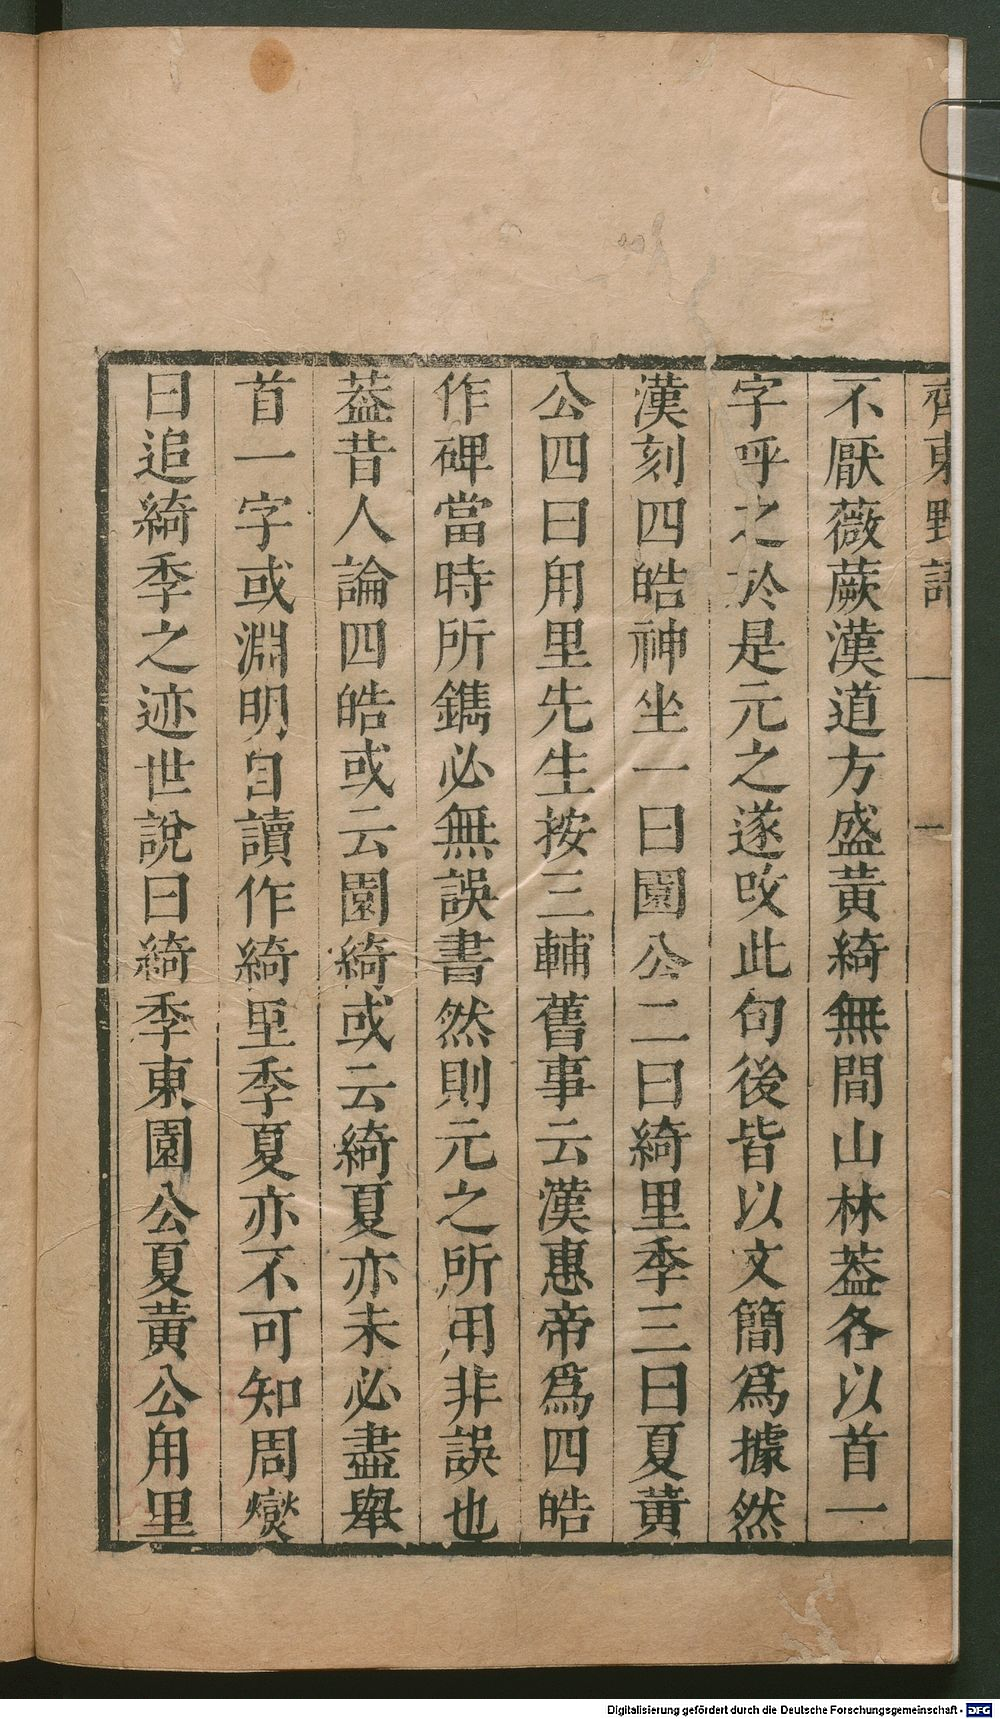 齊東野語 一
不厭薇蕨漢道方盛黃綺無間山林葢各以首一
字呼之於是元之遂改此句後皆以文簡爲據然
漢刻四皓神坐一曰園公二曰綺里季三曰夏黃
公四曰甪里先生按三輔舊事云漢惠帝爲四皓
作碑當時所鐫必無誤書然則元之所用非誤也
葢昔人論四皓或云園綺或云綺夏亦未必盡舉
首一字或淵明自讀作綺里季夏亦不可知周燮
曰追綺季之迹世說曰綺季東園公夏黃公甪里
Digitalisierung gefördert durch die Deutsche Forschungsgemeinschaft - DFG